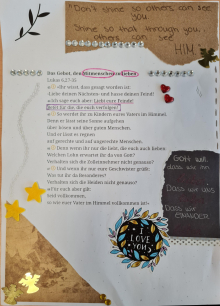 Don't shine so others can see
you
Shine so that through you,
others can see
HIM
Das Gebot, den Mitmenschen zu lieben
Lukas 6,27-35
Ihr wisst, dass gesagt worden ist:
Liebe deinen Nächsten und hasse deinen Feind!
Ich sage euch aber: Liebt eure Feinde!
Betet für die, die euch verfolgen!
So werdet ihr zu Kindern eures Vaters im Himmel.
Denn er lässt seine Sonne aufgehen
über bösen und über guten Menschen.
Und er lässt es regnen
auf gerechte und auf ungerechte Menschen.
Denn wenn ihr nur die liebt, die euch auch lieben:
Welchen Lohn erwartet ihr da von Gott?
Verhalten sich die Zolleinnehmer nicht genauso?
Und wenn ihr nur eure Geschwister grüßt:
Was tut ihr da Besonderes?
Verhalten sich die Heiden nicht genauso?
Für euch aber gilt:
Seid vollkommen,
so wie euer Vater im Himmel vollkommen ist!
Gott will,
dass wir ihn
dass wir uns
Dass wir
EINANDER
I
LOVE
YOU